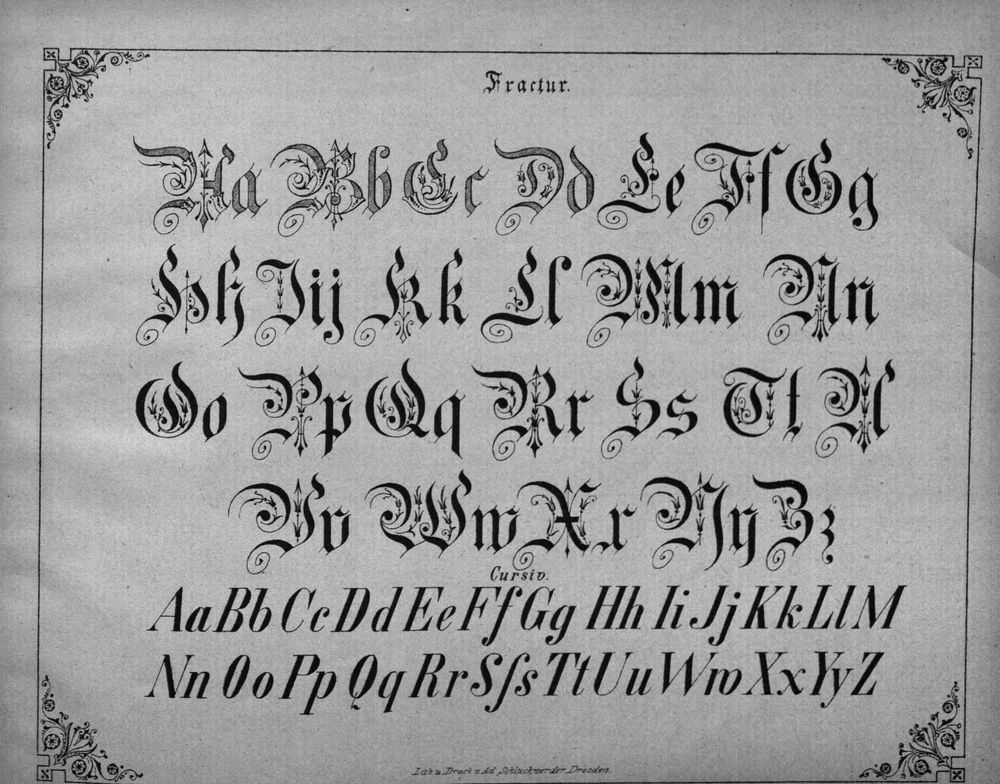 Fractur.
Aa Bb Cc Dd Ee Ff Gg
Hh Iij Kk Ll Mm Nn
Oo Pp Qq Rr Ss Tt U
Vv Ww Xx Yy Zz
Cursiv.
Aa Bb Cc Dd Ee Ff Gg Hh Ii Jj Kk Ll M
Nn Oo Pp Qq Rr Sſs Tt Uu Ww Xx Yy Z
Druck v. Ad. Schluckwerder Dresden.